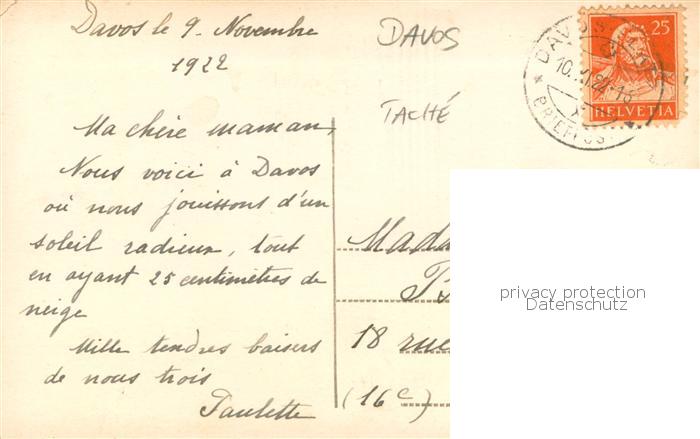 Davos le 9. Novembre
1922
DAVOS
TACHÉ
25
HELVETIA
DAVOS
10.
BRIEFPOST
Ma chère maman,
Nous voici à Davos
où nous jouissons d'un
soleil radieux, tout
en ayant 25 centimètres de
neige
Mille tendres baisers
de nous trois
Paulette
Mada
18 rue
(16e)
privacy protection
Datenschutz